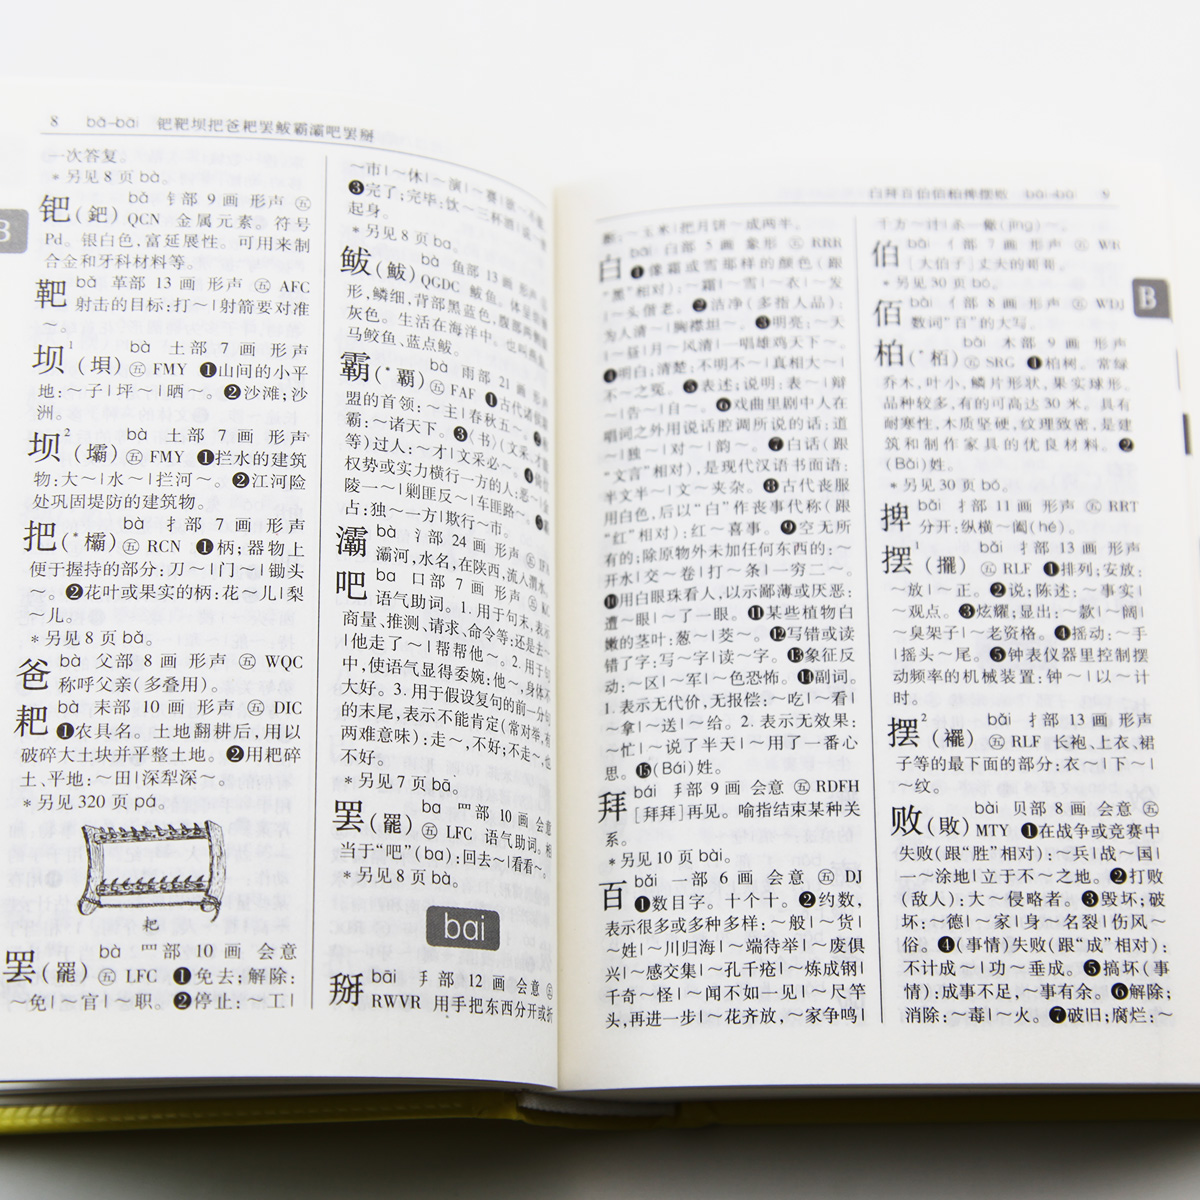 8 bǎ–bāi 钯靶坝把爸耙罢鲅霸灞吧罢掰
一次答复。
*另见 8 页 bà。
钯(鈀) bǎ 钅部 9 画 形声 ㊄
QCN 金属元素。符号
Pd。银白色,富延展性。可用来制
合金和牙科材料等。
靶 bǎ 革部 13 画 形声 ㊄ AFC
射击的目标:打~|射箭要对准
~。
坝1(垻) bà 土部 7 画 形声
㊄ FMY ❶山间的小平
地:~子|坪~|晒~。❷沙滩;沙
洲。
坝2(壩) bà 土部 7 画 形声
㊄ FMY ❶拦水的建筑
物:大~|水~|拦河~。❷江河险
处巩固堤防的建筑物。
把(*欛) bà 扌部 7 画 形声
㊄ RCN ❶柄;器物上
便于握持的部分:刀~|门~|锄头
~。❷花叶或果实的柄:花~儿|梨
~儿。
*另见 8 页 bǎ。
爸 bà 父部 8 画 形声 ㊄ WQC
称呼父亲(多叠用)。
耙 bà 耒部 10 画 形声 ㊄ DIC
❶农具名。土地翻耕后,用以
破碎大土块并平整土地。❷用耙碎
土、平地:~田|深犁深~。
*另见 320 页 pá。
耙
罢(罷) bà 罒部 10 画 会意
㊄ LFC ❶免去;解除:
~免|~官|~职。❷停止:~工|
~市|~休|~演|~赛|欲~不能。
❸完了;完毕:饮~三杯酒|说~
起身。
*另见 8 页 ba。
鲅(鲅) bà 鱼部 13 画 形声
QGDC 鲅鱼。体呈纺锤
形,鳞细,背部黑蓝色,腹部两侧银
灰色。生活在海洋中。也叫燕鱼、
马鲛鱼、蓝点鲅。
霸(*覇) bà 雨部 21 画 形声
㊄ FAF ❶古代诸侯联
盟的首领:~主|春秋五~。❷
霸:~诸天下。❸〈书〉(文采、才能
等)过人:~才|文采必~。❹倚仗
权势或实力横行一方的人:恶~|金
陵一~|剿匪反~|车匪路~。❺霸
占:独~一方|欺行~市。
灞 bà 氵部 24 画 形声 ㊄ IFA
灞河,水名,在陕西,流入渭水。
吧 ba 口部 7 画 形声 ㊄ KC
语气助词。1. 用于句末,表示
商量、推测、请求、命令等:还是去~
|他走了~|帮帮他~。2. 用于句
中,使语气显得委婉:他~,身体不
大好。3. 用于假设复句的前一分句
的末尾,表示不能肯定(常对举,有
两难意味):走~,不好;不走~,也
不好。
*另见 7 页 bā。
罢(罷) ba 罒部 10 画 会意
㊄ LFC 语气助词。相
当于“吧”(ba):回去~|看看~。
*另见 8 页 bà。
bai
掰 bāi 手部 12 画 会意 ㊄
RWVR 用手把东西分开或折
白拜百伯佰柏捭摆败 bāi–bài 9
断:~玉米|把月饼~成两半。
白 bái 白部 5 画 象形 ㊄ RRR
❶像霜或雪那样的颜色(跟
“黑”相对):~霜|~雪|~衣|~发
|~头偕老。❷洁净(多指人品):
为人清~|胸襟坦~。❸明亮:~天
|~昼|月~风清|一唱雄鸡天下~。
❹明白;清楚:不明不~|真相大~|
不~之冤。❺表述;说明:表~|辩
~|告~|自~。❻戏曲里剧中人在
唱词之外用说话腔调所说的话:道
~|独~|对~|韵~。❼白话(跟
“文言”相对),是现代汉语书面语:
半文半~|文~夹杂。❽古代丧服
用白色,后以“白”作丧事代称(跟
“红”相对):红~喜事。❾空无所
有的;除原物外未加任何东西的:~
开水|交~卷|打~条|一穷二~。
❿用白眼珠看人,以示鄙薄或厌恶:
遭~眼|~了一眼。⓫某些植物白
嫩的茎叶:葱~|茭~。⓬写错或读
错了字:写~字|读~字。⓭象征反
动:~区|~军|~色恐怖。⓮副词。
1. 表示无代价,无报偿:~吃|~看|
~拿|~送|~给。2. 表示无效果:
~忙|~说了半天|~用了一番心
思。⓯(Bái)姓。
拜 bái 手部 9 画 会意 ㊄ RDFH
[拜拜]再见。喻指结束某种关
系。
*另见 10 页 bài。
百 bǎi 一部 6 画 会意 ㊄ DJ
❶数目字。十个十。❷约数,
表示很多或多种多样:~般|~货|
~姓|~川归海|~端待举|~废俱
兴|~感交集|~孔千疮|~炼成钢|
千奇~怪|~闻不如一见|~尺竿
头,再进一步|~花齐放,~家争鸣|
千方~计|杀一儆(jǐng)~。
伯 bǎi 亻部 7 画 形声 ㊄ WR
[大伯子]丈夫的哥哥。
*另见 30 页 bó。
佰 bǎi 亻部 8 画 形声 ㊄ WDJ
数词“百”的大写。
柏(*栢) bǎi 木部 9 画 形声
㊄ SRG ❶柏树。常绿
乔木,叶小,鳞片形状,果实球形。
品种较多,有的可高达 30 米。具有
耐寒性,木质坚硬,纹理致密,是建
筑和制作家具的优良材料。❷
(Bǎi)姓。
*另见 30 页 bó。
捭 bǎi 扌部 11 画 形声 ㊄ RRT
分开:纵横~阖(hé)。
摆1(擺) bǎi 扌部 13 画 形声
㊄ RLF ❶排列;安放:
~放|~正。❷说;陈述:~事实|
~观点。❸炫耀;显出:~款|~阔|
~臭架子|~老资格。❹摇动:~手
|摇头~尾。❺钟表仪器里控制摆
动频率的机械装置:钟~|以~计
时。
摆2(襬) bǎi 扌部 13 画 形声
㊄ RLF 长袍、上衣、裙
子等的最下面的部分:衣~|下~|
~纹。
败(敗) bài 贝部 8 画 会意 ㊄
MTY ❶在战争或竞赛中
失败(跟“胜”相对):~兵|战~国|
一~涂地|立于不~之地。❷打败
(敌人):大~侵略者。❸毁坏;破
坏:~德|~家|身~名裂|伤风~
俗。❹(事情)失败(跟“成”相对):
不计成~|功~垂成。❺搞坏(事
情):成事不足,~事有余。❻解除;
消除:~毒|~火。❼破旧;腐烂:~
B
B